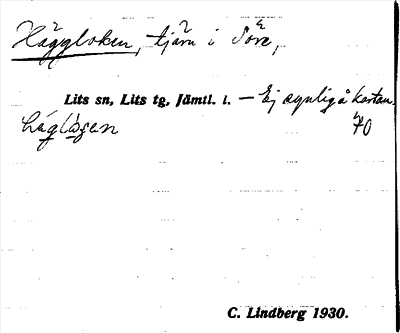 Häggloken, tjärn i Söre,
Lits sn, Lits tg, Jämtl. l. – Ej synlig å kartan.
70
C. Lindberg 1930.